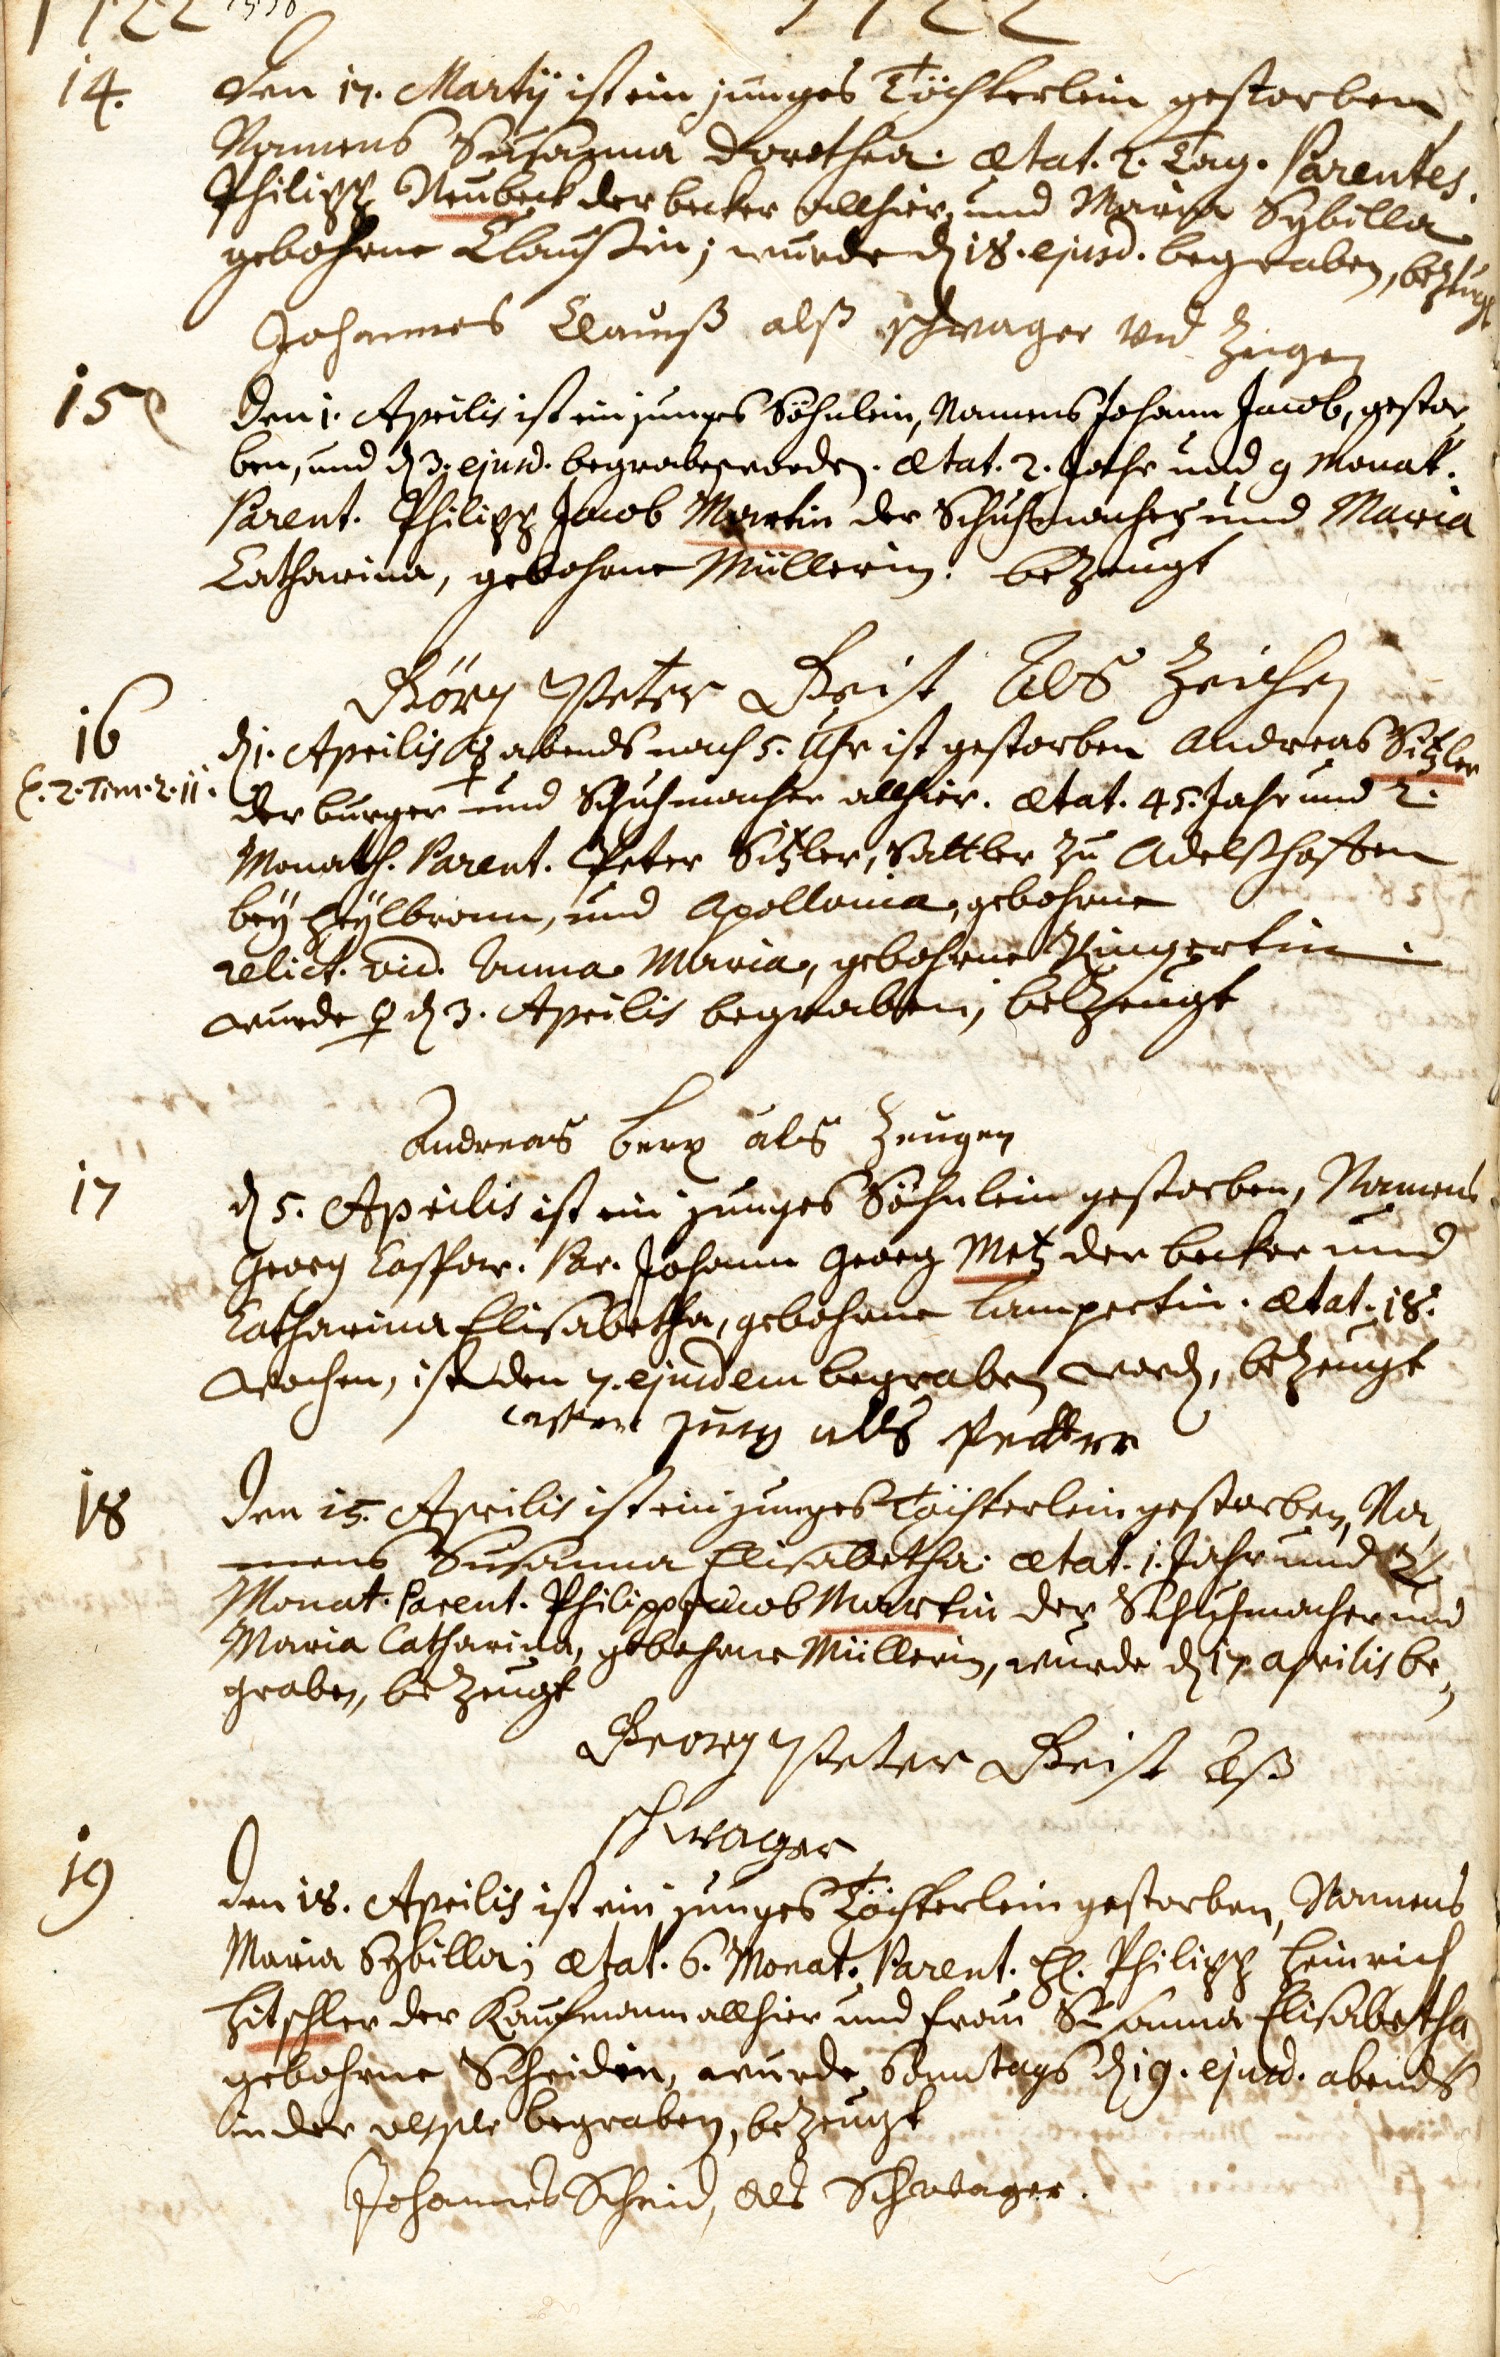 1722 1722
14. Den 17. Martij ist ein junges Töchterlein gestorben
Namens Susanna Dorothea. Ætat. 2. Tag. Parentes.
Philipp Neubeck der becker allhier, und Maria Sybilla
gebohrne Claussin; wurde d 18. ejusd. begraben, bezeugt
Johannes Clauß alß schwager vnd Zeigen
15 Den 1. Aprilis ist ein junges Söhnlein, Namens Johann Jacob, gestor,
ben, und d 3. ejusd. begraben worden. Ætat. 2. Jahr und 9 Monat.
Parent. Philipp Jacob Martin der Schuhmacher und Maria
Catharina, gebohrne Müllerin. bezeugt
Görg Peter Geist Als Zeichen
16 d 1. Aprilis ☿ abends nach 5. Uhr ist gestorben Andreas Sitzler
C. 2. Tim. 2. 11. der burger und Schuhmacher allhier. Ætat. 45. Jahr und 2.
Monath. Parent. Peter Sitzler, Sattler zu Adelshoffen
bey Heylbronn, und Apollonia, gebohrne
relict. vid. Anna Maria, gebohrne Pingertin.
wurde ♀ d 3. Aprilis begraben, bezeugt
Andreas berg als Zeugen
17 d 5. Aprilis ist ein junges Söhnlein gestorben, Namens
Georg Caspar. Par. Johann Georg Metz der becker und
Catharina Elisabetha, gebohrne Lampertin. Ætat. 18.
wochen, ist den 7. ejusdem begraben word, bezeugt
jurg alls Petter
18 Den 15. Aprilis ist ein junges Töchterlein gestorben, Na,
mens Susanna Elisabetha. Ætat. 1. Jahr und 2
Monat. Parent. Philipp Jacob Martin der Schuhmacher und
Maria Catharina, gebohrne Müllerin, wurde d 17. aprilis be,
graben, bezeugt
Georg Peter Geist Alß
schwager
19 Den 18. Aprilis ist ein junges Töchterlein gestorben, Namens
Maria Sybilla; Ætat. 6. Monat. Parent. H. Philipp Heinrich
Hitschler der Kauffmann allhier und frau Susanna Elisabetha
gebohrne Scheidin, wurde Sonntags d 19. ejusd. abends
in der vesper begraben, bezeugt
Johannes Scheid, als Schwager.